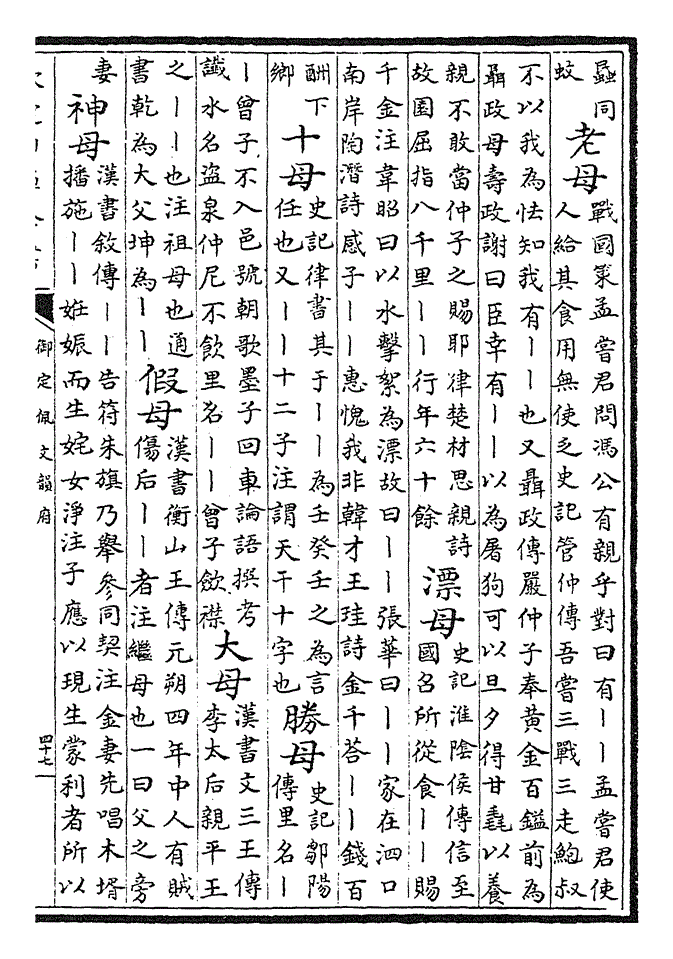 蝱同
蚊
老母
戰國策孟嘗君問馮公有親乎對曰有丨丨孟嘗君使
人給其食用無使乏史記管仲傳吾嘗三戰三走鮑叔
不以我為怯知我有丨丨也又聶政傳嚴仲子奉黃金百鎰前為
聶政母壽政謝曰臣幸有丨丨以為屠狗可以旦夕得甘毳以養
親不敢當仲子之賜耶律楚材思親詩
故国屈指八千里丨丨行年六十餘
漂母
史記淮陰侯傳信至
國名所從食丨丨賜
千金注韋昭曰以水擊絮為漂故曰丨丨張華曰丨丨家在泗口
南岸陶潛詩感子丨丨惠愧我非韓才王珪詩金千荅丨丨錢百
酬下
鄉
十母
史記律書其于丨丨為壬癸壬之為言
任也又丨丨十二子注謂天干十字也
勝母
史記鄒陽
傳里名丨
丨曾子不入邑號朝歌墨子回車論語撰考
讖水名盜泉仲尼不飲里名丨丨曾子歛襟
大母
漢書文三王傳
李太后親平王
之丨丨也注祖母也通
書乾為大父坤為丨丨
假母
漢書衡山王傳元朔四年中人有賊
傷后丨丨者注繼母也一曰父之旁
妻
神母
漢書敘傳丨丨告符朱旗乃舉參同契注金妻先唱木壻
播施丨丨姙娠而生姹女淨注子應以現生蒙利者所以
御定佩文韻府
四十七